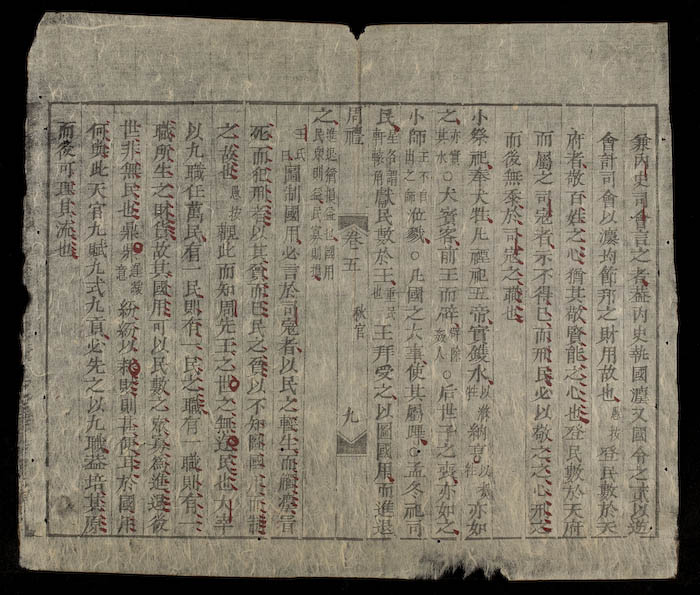 兼內史司會言之者蓋內史執國灋又國令之貳以逆
會計司會以灋均節邦之財用故也愚按登民數於天
府者敬百姓之心猶其敬賢能之心也登民數於天府
而屬之司寇者示不得已而刑民必以敬之之心刑之
而後無忝於司寇之職也
小祭祀奉犬牲凡禋祀五帝實鑊水以爨牲納亨以煮牲亦如
之亦實其水○大賓客前王而辟辟除姦人○后世子之喪亦如之
小師王不自出之師涖戮○凡國之大事使其屬蹕○孟冬祀司
民星名謂軒轅角獻民數於王重民也王拜受之以圖國用而進退
周禮 卷五 秋官 九
之進退猶損益也國用民衆則益民寡則損
王氏曰圖制國用必言於司寇者以民之輕生而犯灋者
死而犯刑者以其貧而已民之貧以不知圖國用而制
之故也愚按觀此而知周先王之世之無遊民也大宰
以九職任萬民有一民則有一民之職有一職則有一
職所生之財貨故其國用可以民數之衆寡爲進退後
世非無民也
何與此天官九賦九式九貢必先之以九職蓋培其原
而後可理其流也